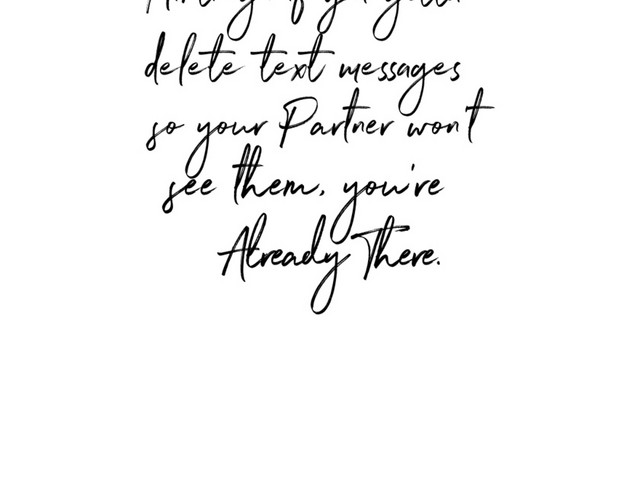 delete text messages
so your Partner won't
see them, you're
Already There.